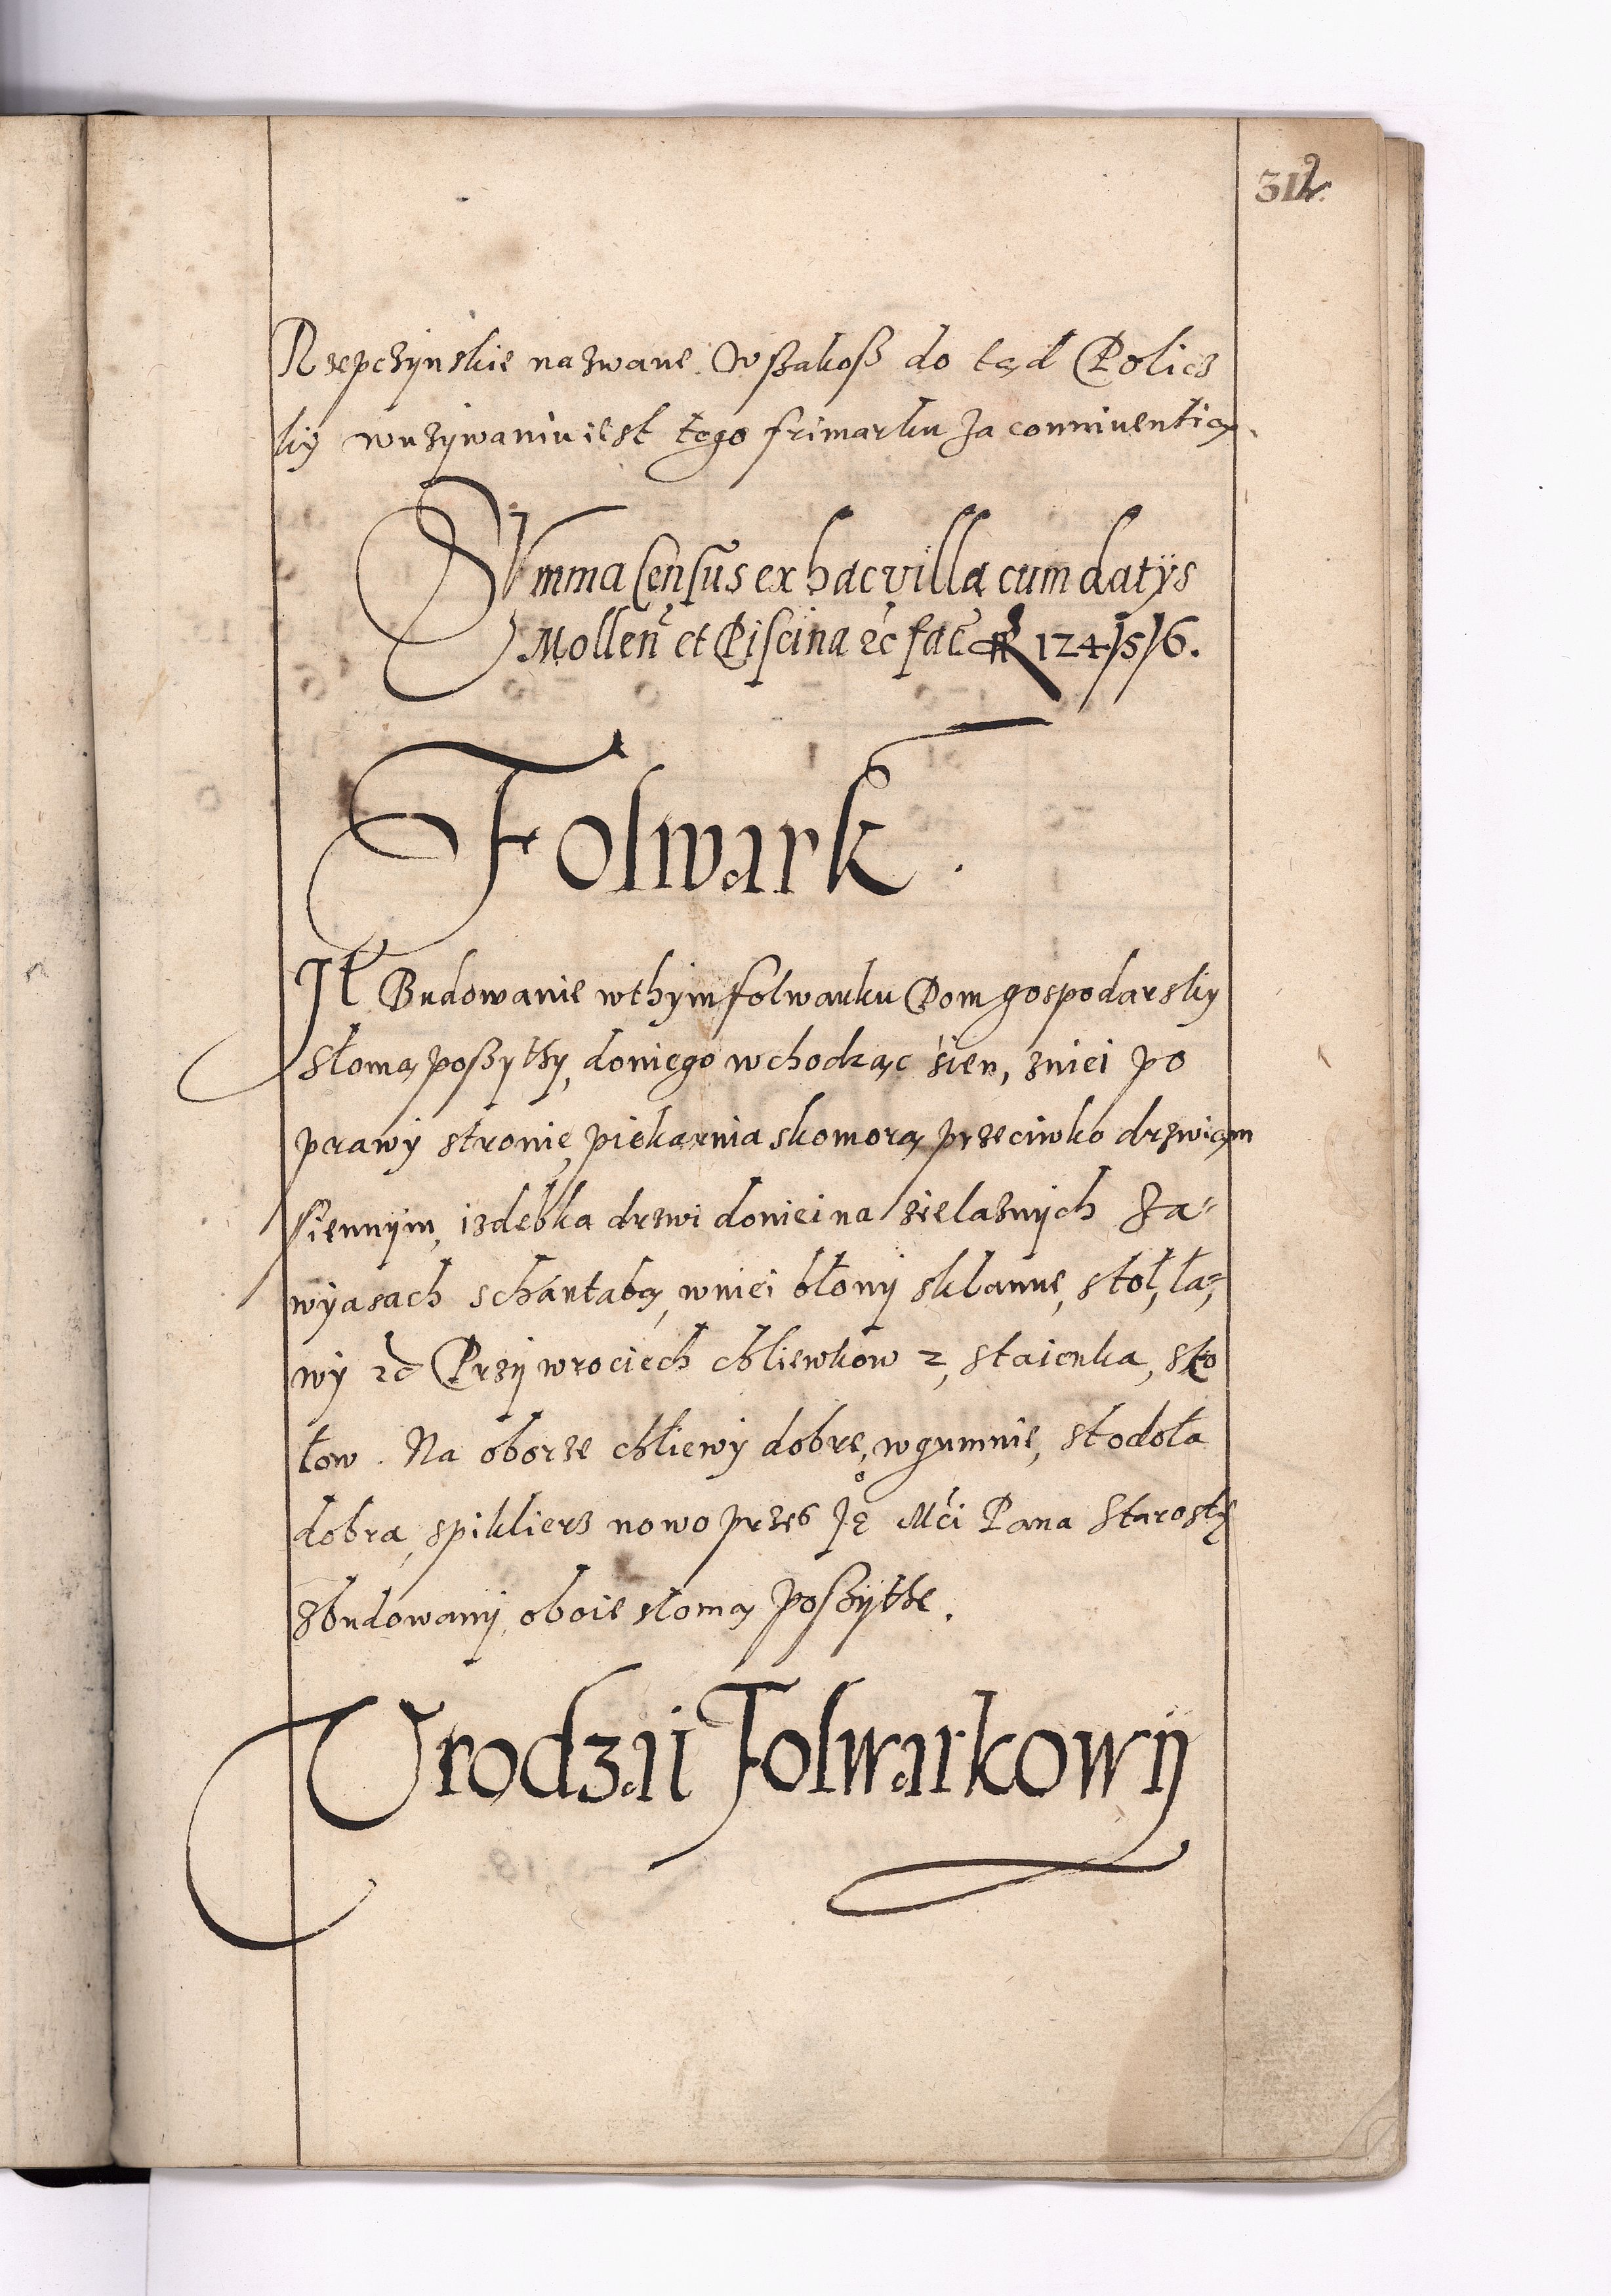 312
Rzepczynskie nazwane. Wszakosz do tąd Policz
ky wuzywaniu iest tego frimarku za conniuentią.
SVmma Censũs ex hac villa cum datÿs
Mollen̄ et Piscina &c̄ fac̄ 124/5/6.
Folwark.
It Budowanie wthym folwarku Dom gospodarsky
słomą poszytky, doniego wchodząc sień, zniei po
prawy stronie, piekarnia skomorą przeciwko drzwiąm
siennÿm, izdebka drzwi doniei na zielaznych Za-
wyasach schántabą, wniei błony sklanne, stoł, ła-
wy &c Przy wrociech chliewkow 2, staienka, sto
łow. Na oborze chłiewy dobre, wgumnie, stodoła
dobra, spikliers nowo przes Ję Mći Pana Starostę
zbudowany, oboie słomą poszÿtke.
Vrodzaii Folwarkowÿ